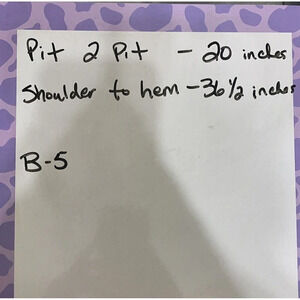 Pit 2 Pit - 20 inches
Shoulder to hem - 36 1/2 inches
B-5